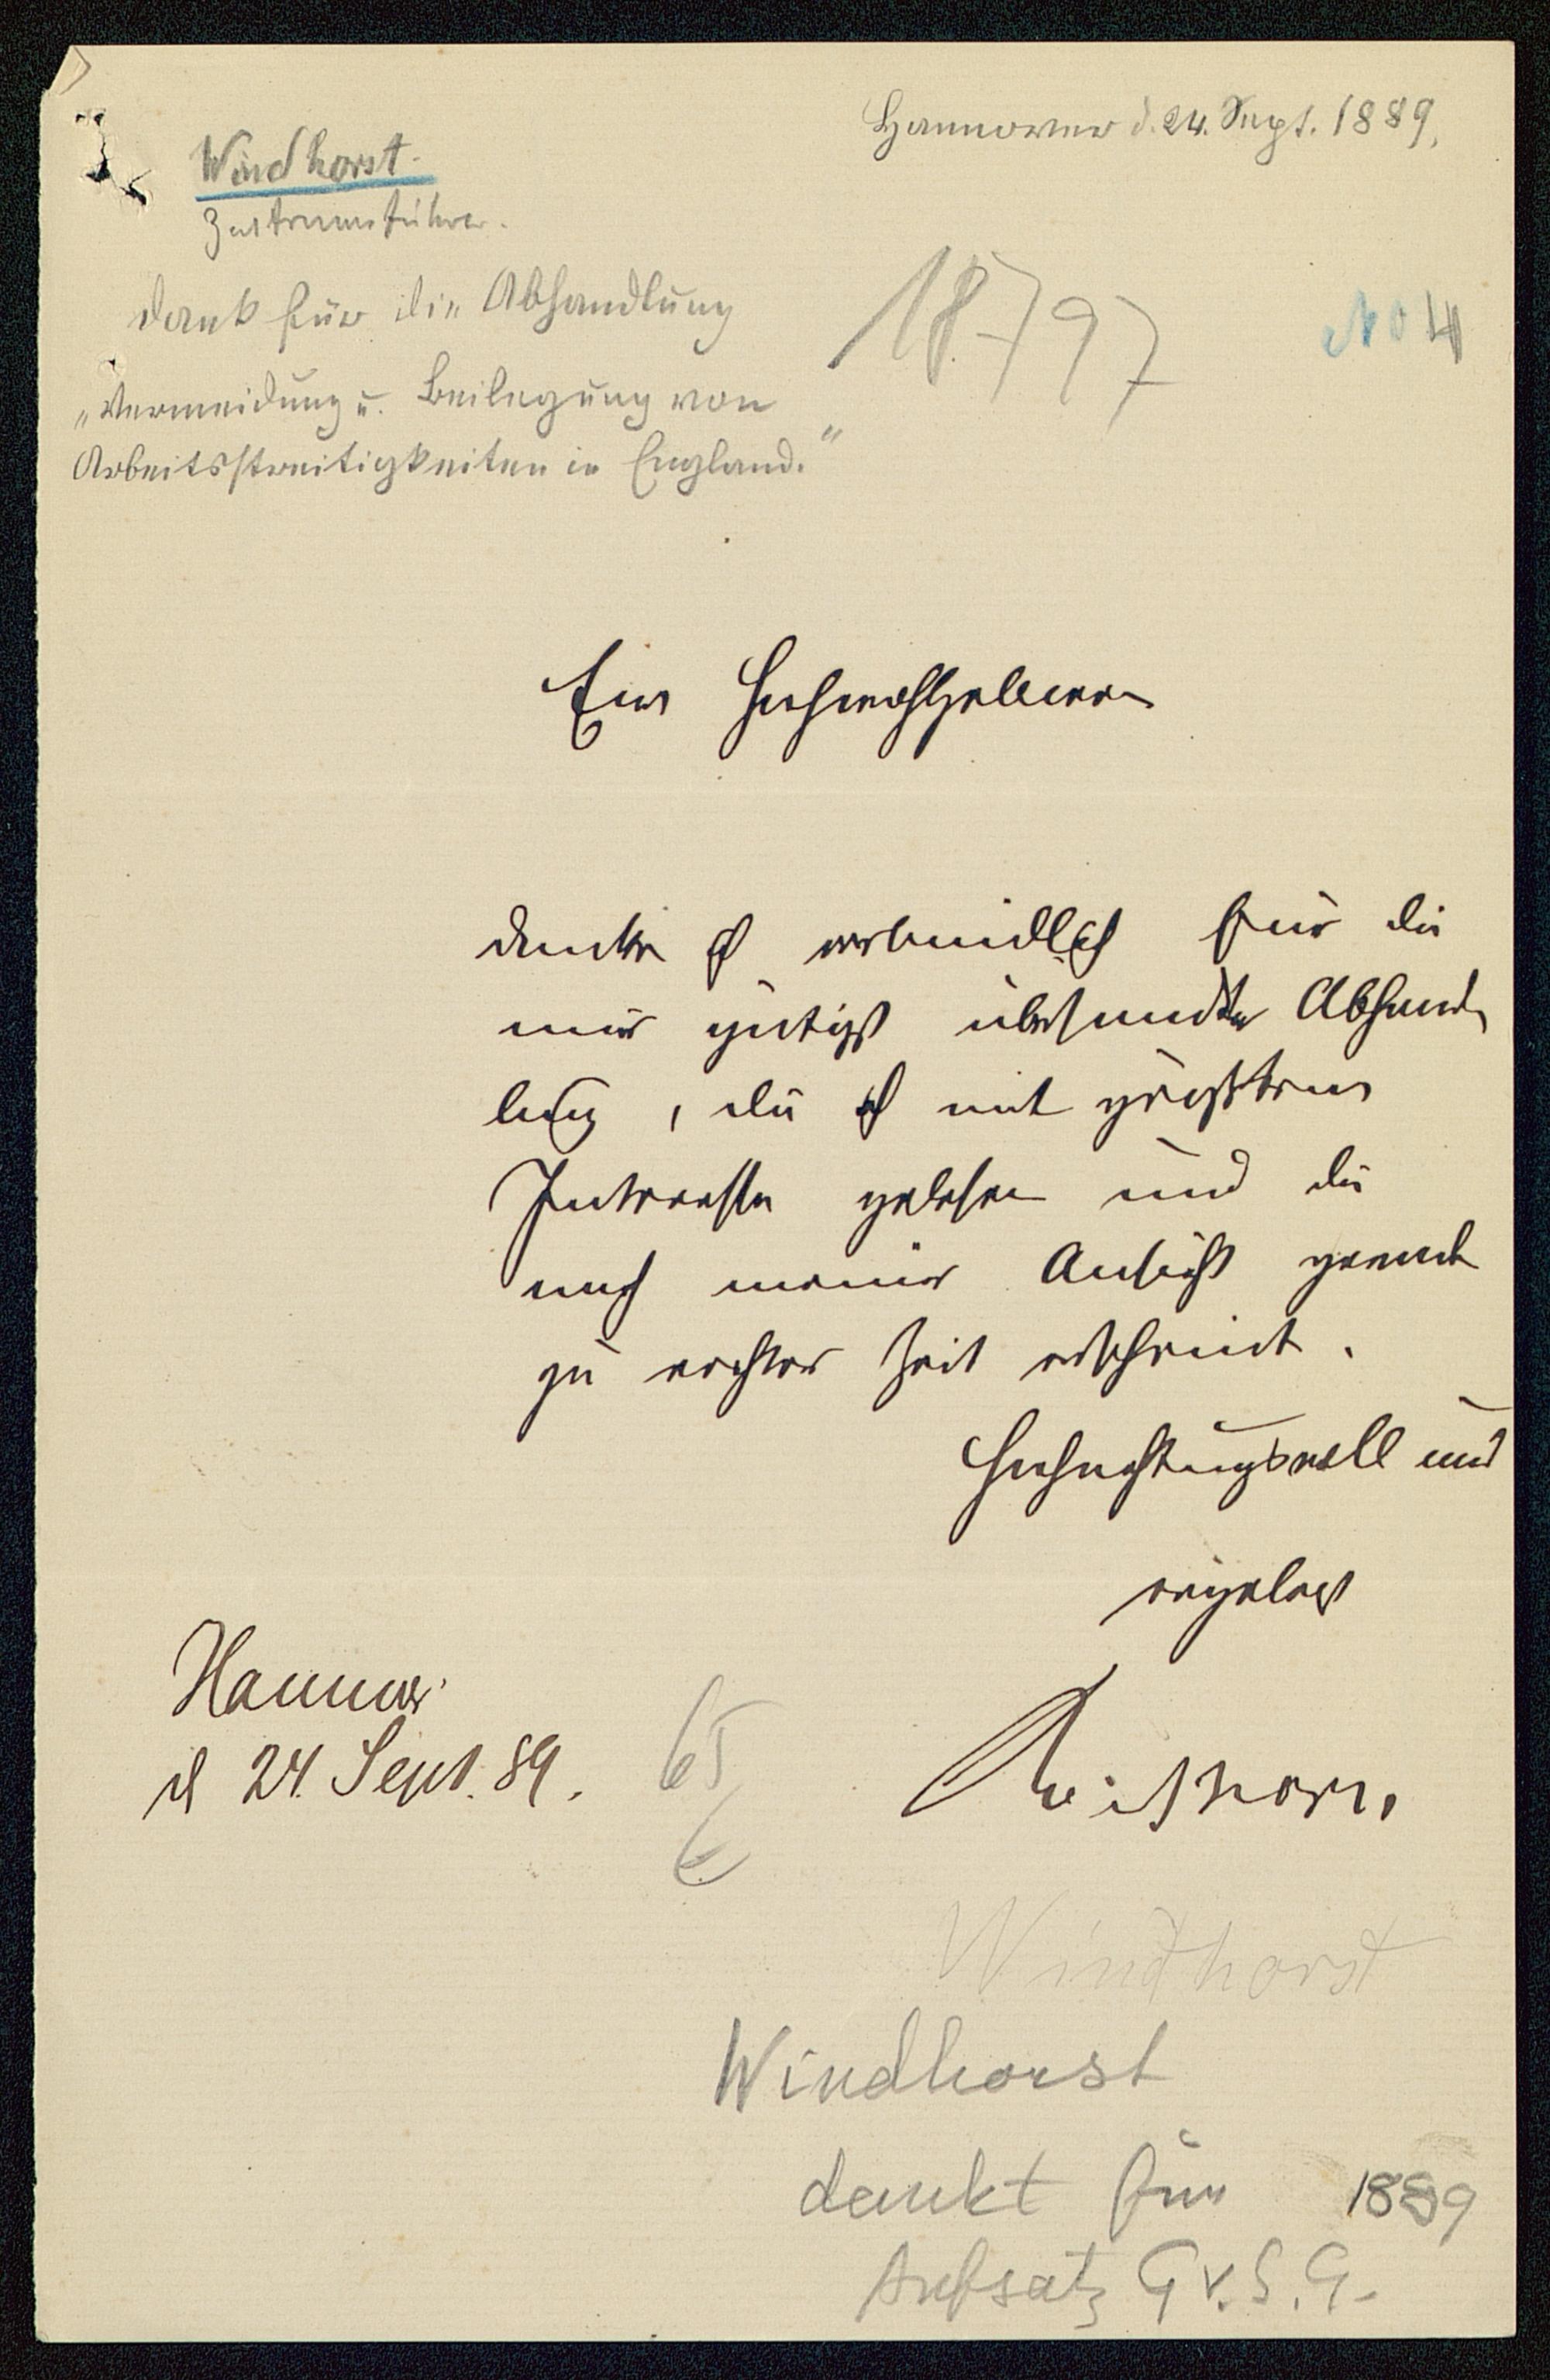 Hannover d. 24. Sept. 1889.
Windhorst.
Zentrumsführer.
Dank für die Abhandlung
„Vermeidung u. Beilegung von
Arbeitsstreitigkeiten in England.“
18797
No 4
Euer Hochwohlgeboren
danke ich verbindlich für die
mir gütigst übersandte Abhand
lung, die ich mit größtem
Interesse gelesen und die
nach meiner Ansicht gerade
zu rechter Zeit erscheint.
Hochachtungsvoll und
ergebenst
Hannover
d 24. Sept. 89.
65
Windhorst
Windhorst
dankt für 1889
Aufsatz G v. S. G.